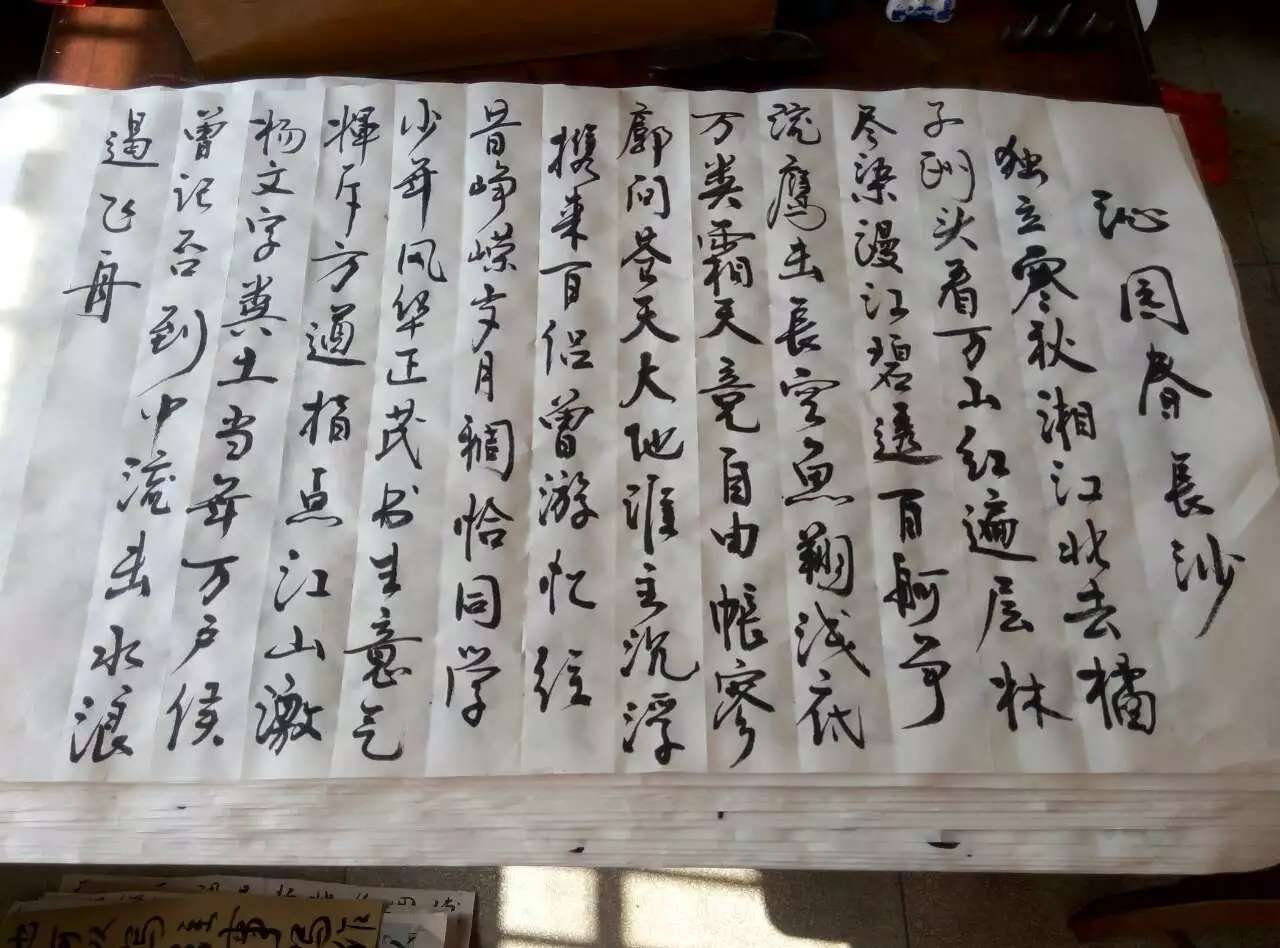 沁园春長沙
独立寒秋湘江北去橘
子洲头看万山红遍层林
尽染漫江碧透百舸争
流鹰击長空鱼翔浅底
万类霜天竟自由帳寥
廓问苍天大地谁主沉浮
携来百侣曾游忆往
昔峥嵘岁月稠恰同学
少年风华正茂书生意气
揮斥方遒指点江山激
扬文字粪土当年万户侯
曾记否到中流击水浪
遏飞舟